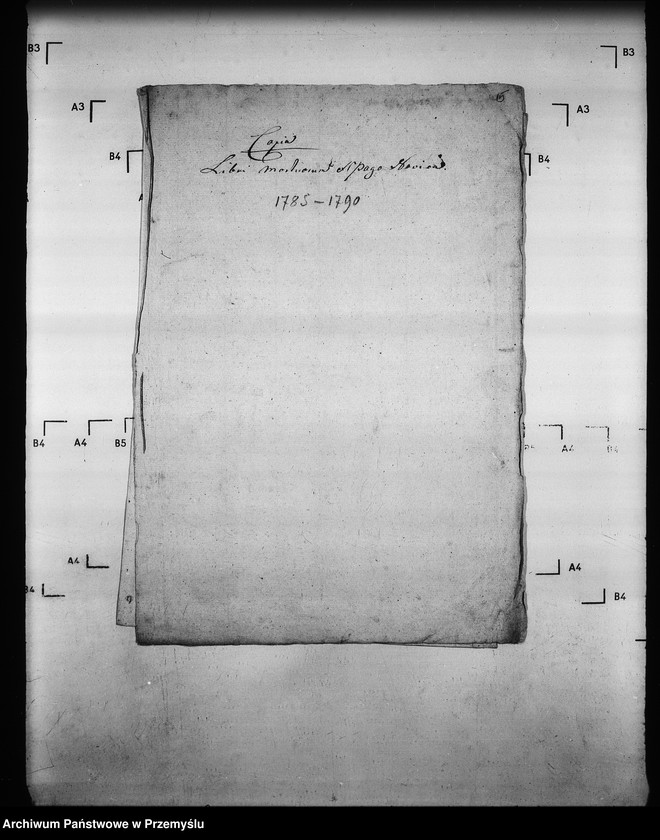 B3 B3
A3 A3
B4 B4
Copia
Libri mortuorum
1785-1790
B4 A4 B5 A4 B4
A4 A4
B4 B4
Archiwum Państwowe w Przemyślu